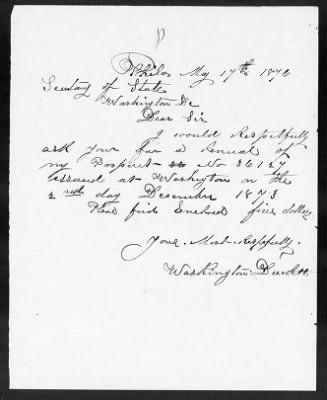 Phila May 17th 1876
Secretary of State
Washington Dc
Dear Sir
I would Respectfully
ask you for a renual of
my Passport No 36127
issued at Washington on the
2 day December 1873
Pleas find Enclosed five dollars
Yours Most Respectfully.
Washington